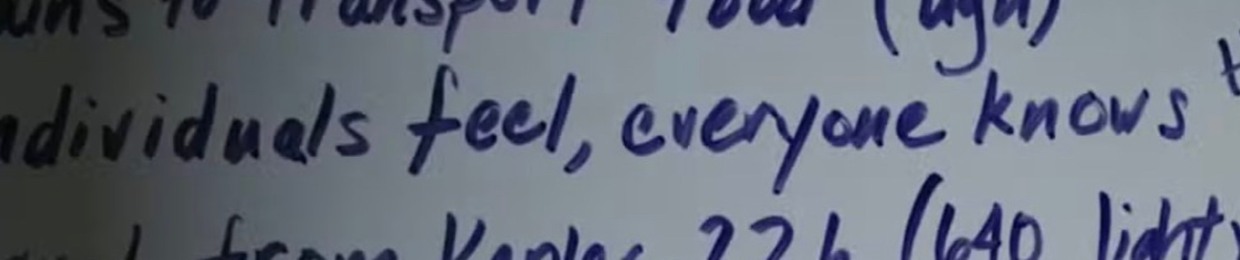 to transport food (ugh)
dividuals feel, everyone knows
from Kepler 22b (640 light